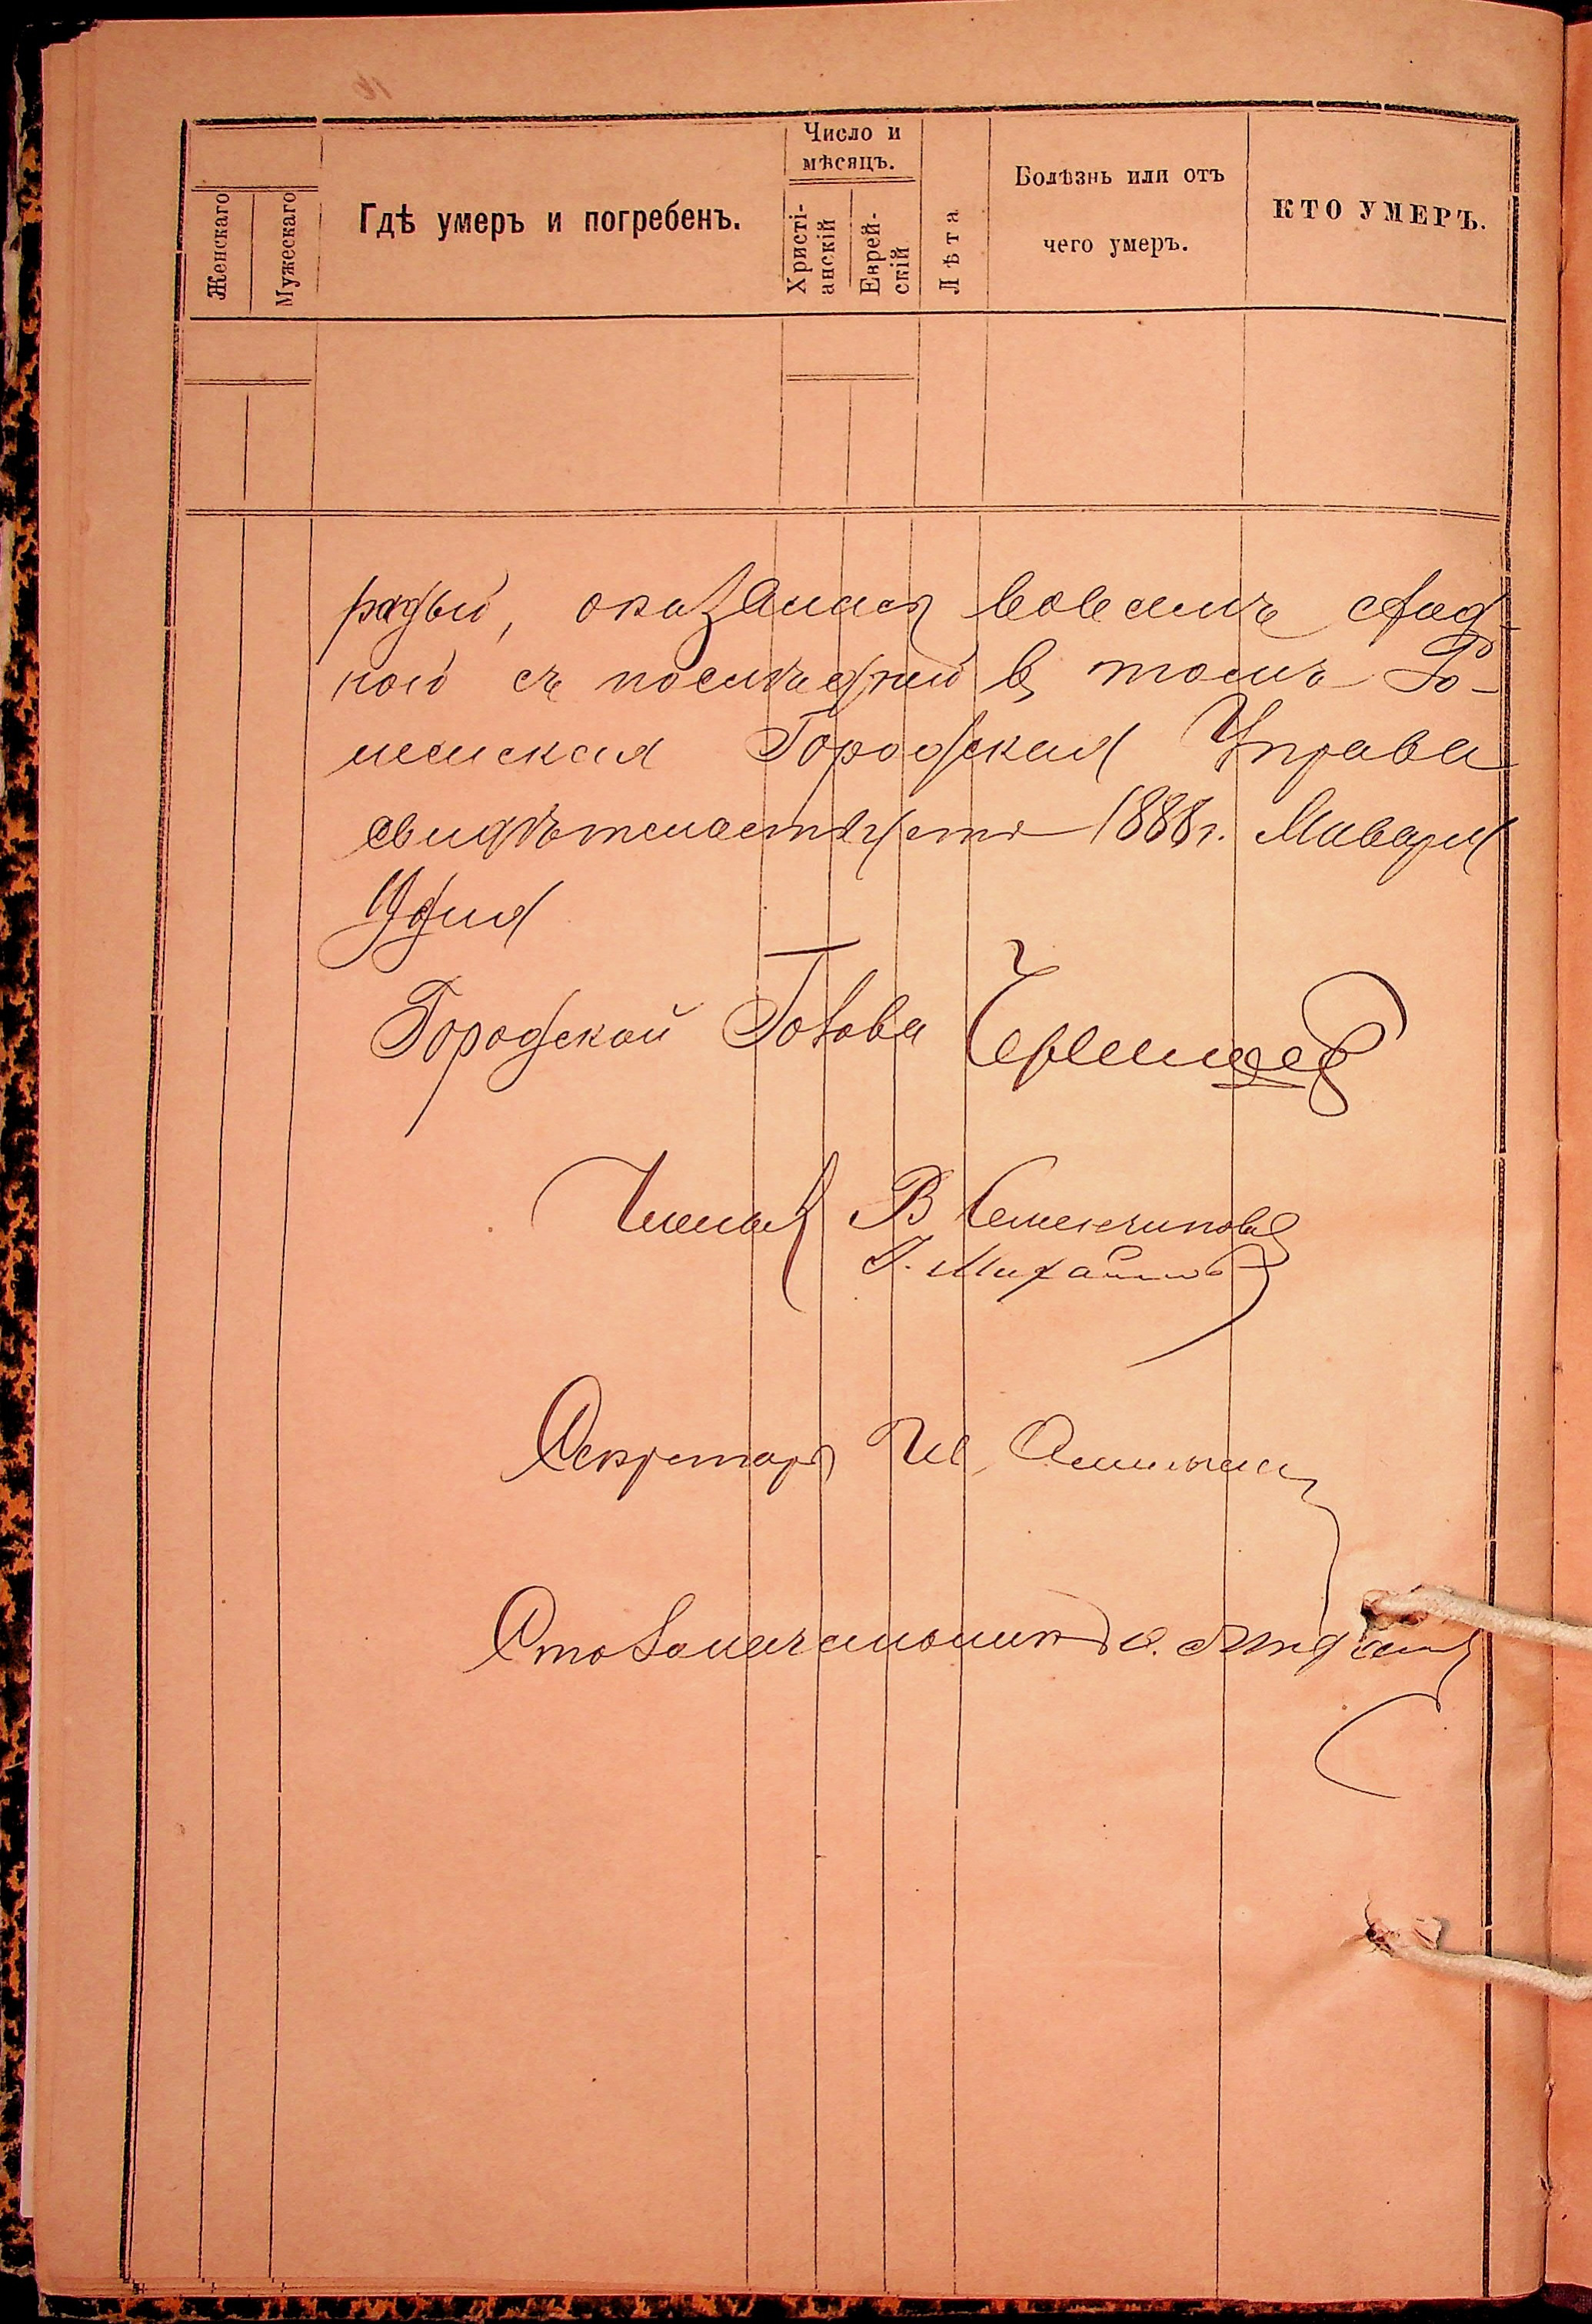 Женскаго
Мужескаго
Гдѣ умеръ и погребенъ.
Число и
мѣсяцъ.
Христі-
анскій
Еврей-
скій
Лѣта
Болѣзнь или отъ
чего умеръ.
КТО УМЕРЪ.
оказалась во всемъ сход-
ною съ послѣдней в томъ Го-
мельская Городская Управа
свидѣтельствуетъ 1888 г. Января
дня
Городской Голова
Члены В
Г. Михайловъ
Секретарь Ив.
Столоначальникъ